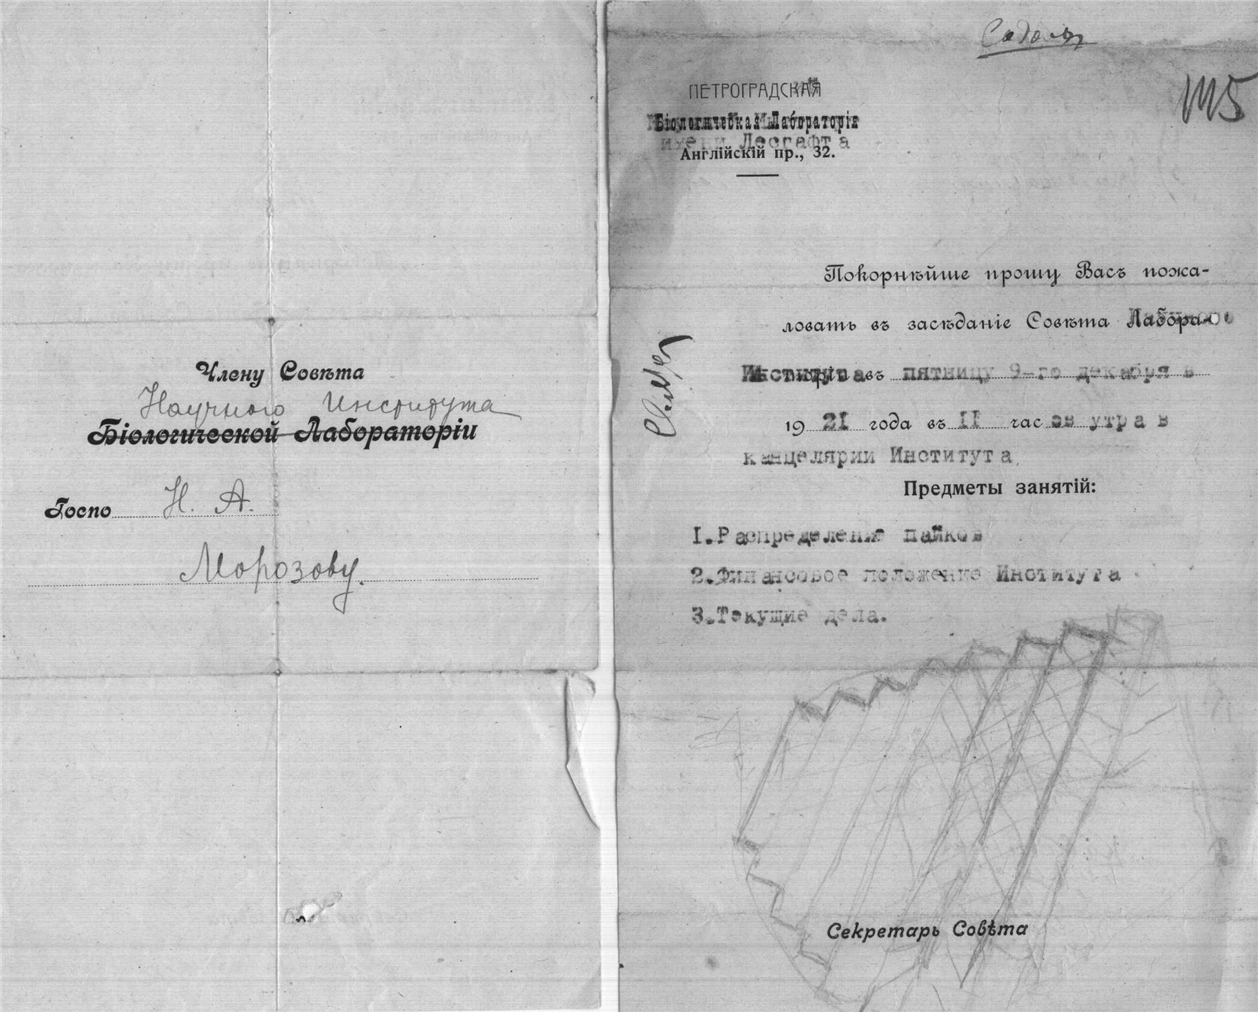 Члену Совѣта
Научного Института
Біологической Лабораторіи
Госпо Н. А.
Морозову.
ПЕТРОГРАДСКАЯ
Біологическая Лабораторія
имени Лесгафта
Англійскій пр., 32.
Покорнѣйше прошу Васъ пожа-
ловать въ засѣданіе Совѣта Лабора-
Института въ пятницу 9-го декабря в
19 21 года въ II час ов утра в
канцелярии Института.
Предметы занятій:
I.Распределения пайков
2.Финансовое положение Института
3.Текущие дела.
Секретарь Совѣта